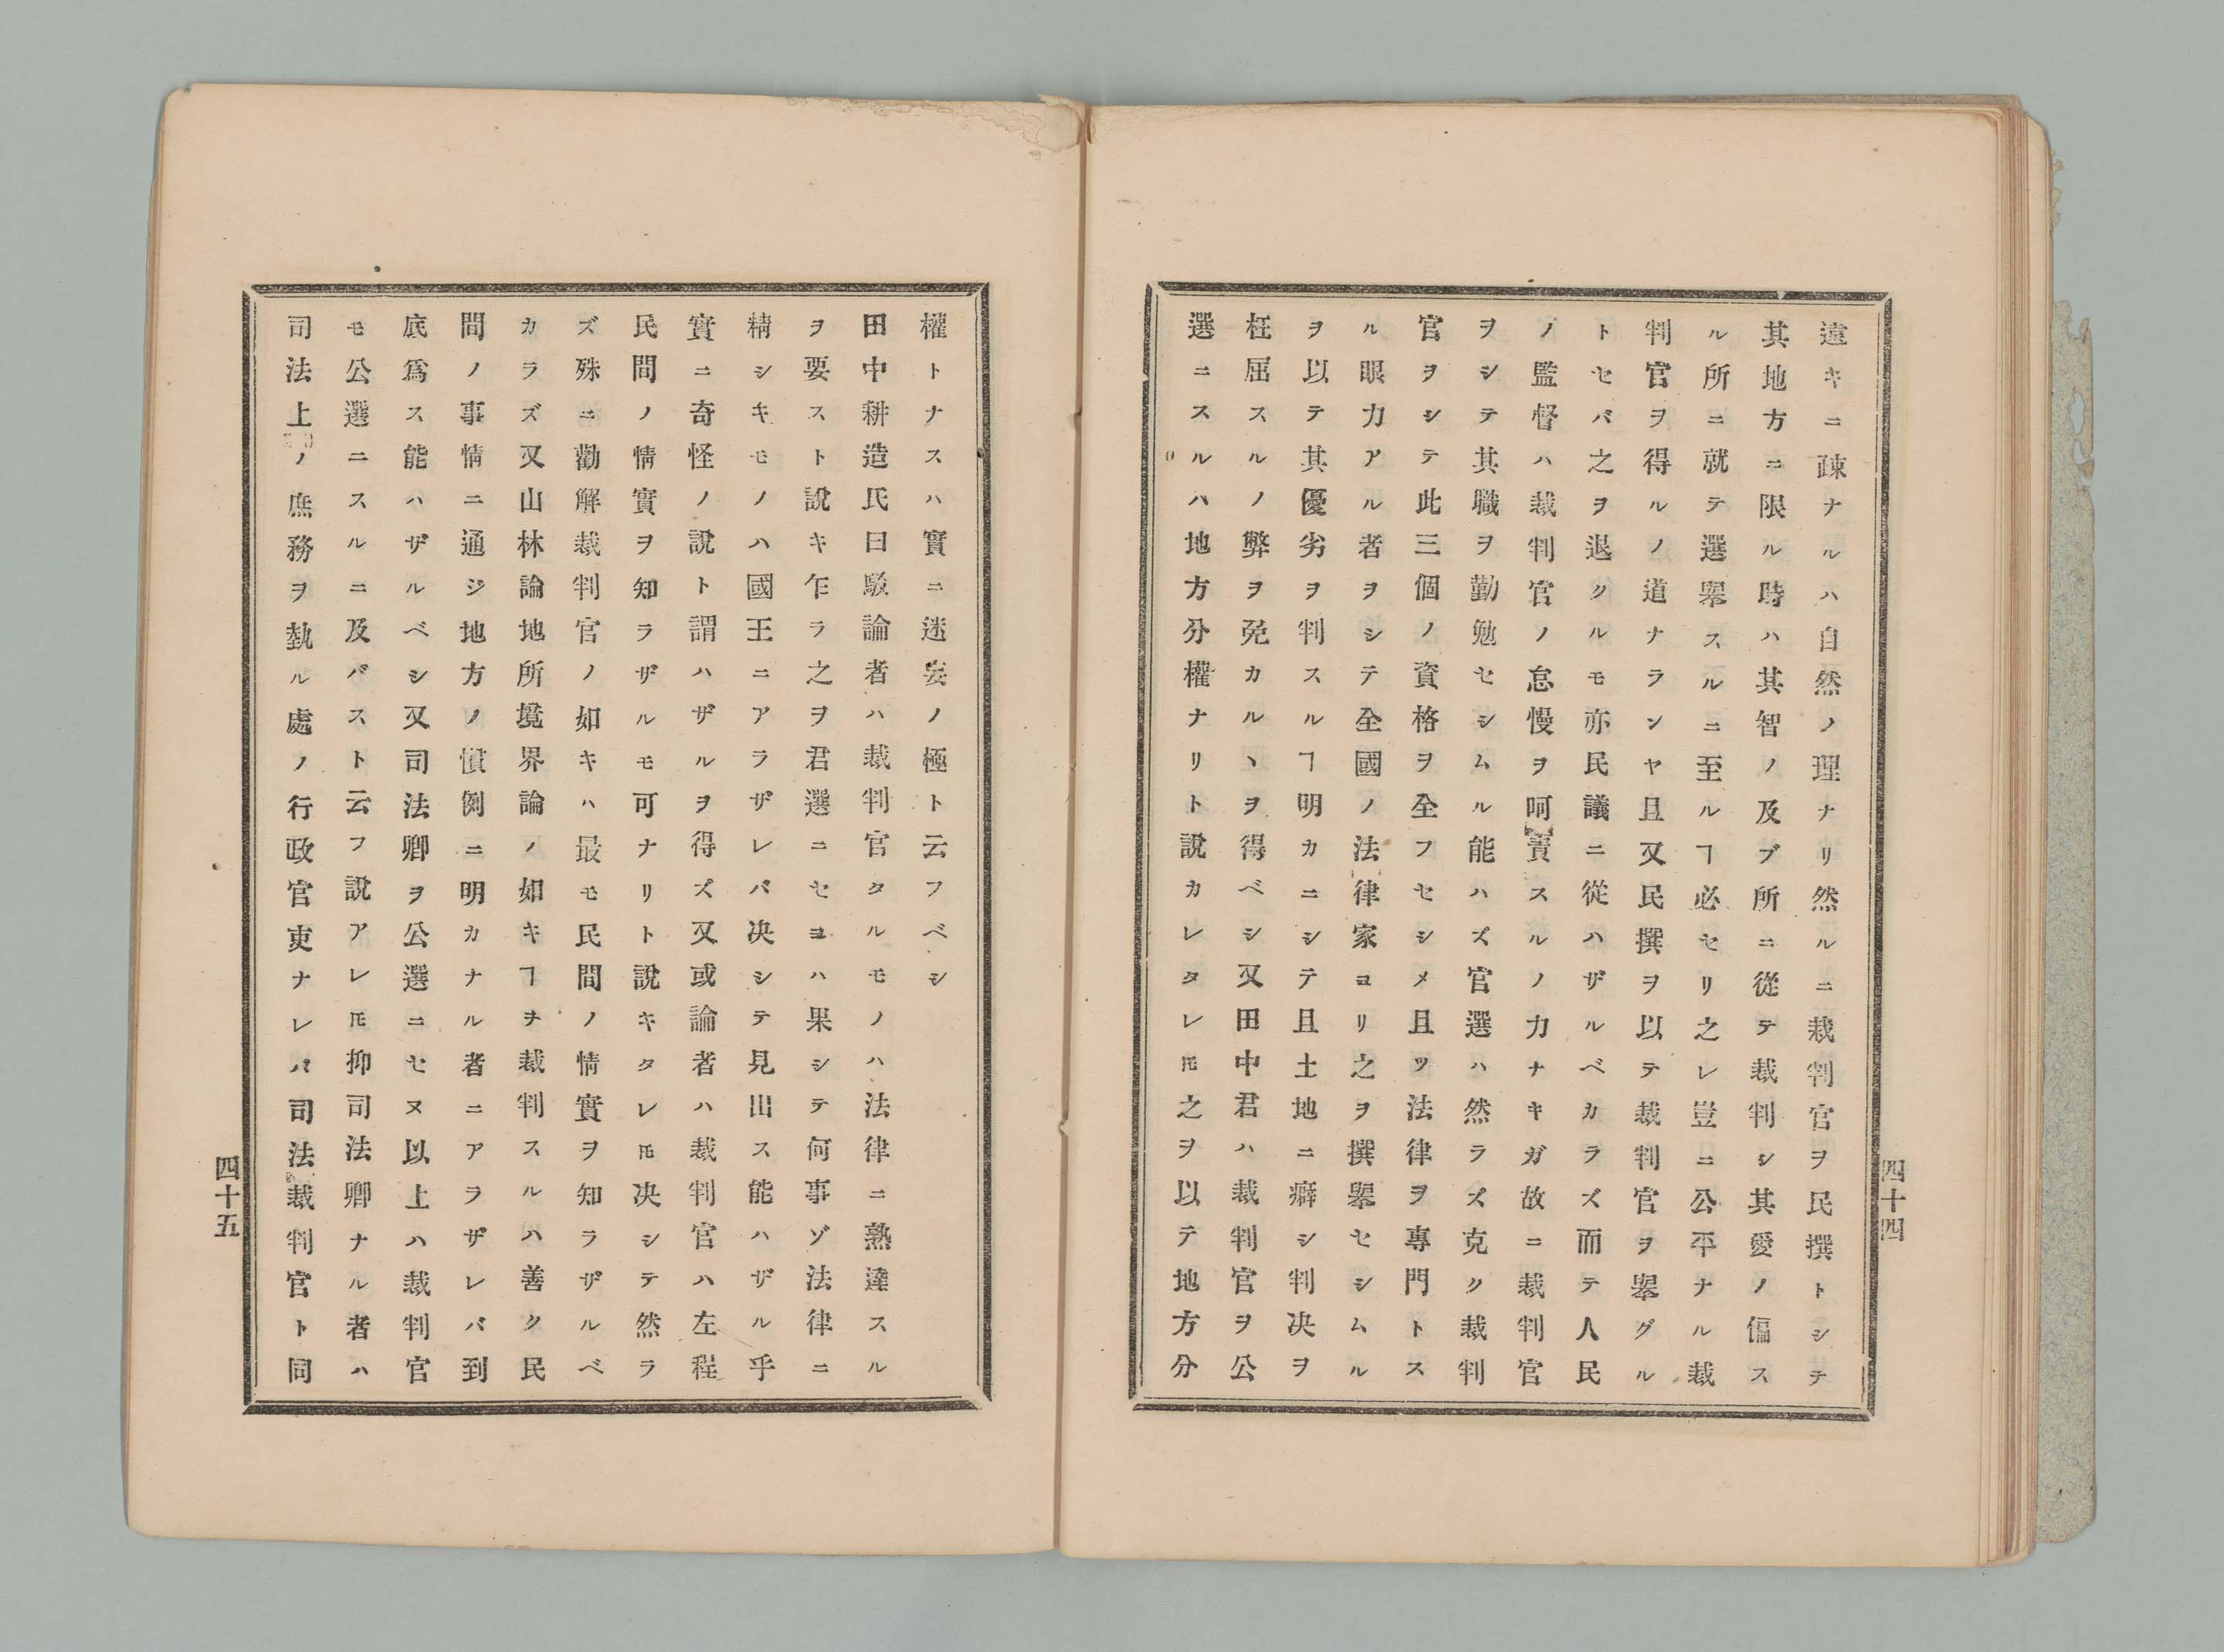 遠キニ疎ナルハ自然ノ理ナリ然ルニ裁判官ヲ民撰トシテ
其地方ニ限ル時ハ其智ノ及ブ所ニ從テ裁判シ其愛ノ偏ス
ル所ニ就テ選擧スルニ至ルヿ必セリ之レ豈ニ公平ナル裁
判官ヲ得ルノ道ナランヤ且又民撰ヲ以テ裁判官ヲ擧グル
トセバ之ヲ退クルモ亦民議ニ從ハザルベカラズ而テ人民
ノ監督ハ裁判官ノ怠慢ヲ呵責スルノ力ナキガ故ニ裁判官
ヲシテ其職ヲ勤勉セシムル能ハズ官選ハ然ラズ克ク裁判
官ヲシテ此三個ノ資格ヲ全フセシメ且ツ法律ヲ專門トス
ル眼力アル者ヲシテ全國ノ法律家ヨリ之ヲ撰擧セシムル
ヲ以テ其優劣ヲ判スルヿ明カニシテ且土地ニ癖シ判决ヲ
枉屈スルノ弊ヲ免カルヽヲ得ベシ又田中君ハ裁判官ヲ公
選ニスルハ地方分權ナリト說カレタレ𪜈之ヲ以テ地方分
四十四
權トナスハ實ニ迷妄ノ極ト云フベシ
田中耕造氏曰駁論者ハ裁判官タルモノハ法律ニ熟達スル
ヲ要スト說キ乍ラ之ヲ君選ニセヨハ果シテ何事ゾ法律ニ
精シキモノハ國王ニアラザレバ决シテ見出ス能ハザル乎
實ニ奇怪ノ說ト謂ハザルヲ得ズ又或論者ハ裁判官ハ左程
民間ノ情實ヲ知ラザルモ可ナリト說キタレ𪜈决シテ然ラ
ズ殊ニ勸解裁判官ノ如キハ最モ民間ノ情實ヲ知ラザルベ
カラズ又山林論地所境界論ノ如キヿヲ裁判スルハ善ク民
間ノ事情ニ通ジ地方ノ慣例ニ明カナル者ニアラザレバ到
底爲ス能ハザルベシ又司法卿ヲ公選ニセヌ以上ハ裁判官
モ公選ニスルニ及バスト云フ說アレ𪜈抑司法卿ナル者ハ
司法上ノ庶務ヲ執ル處ノ行政官吏ナレバ司法裁判官ト同
四十五